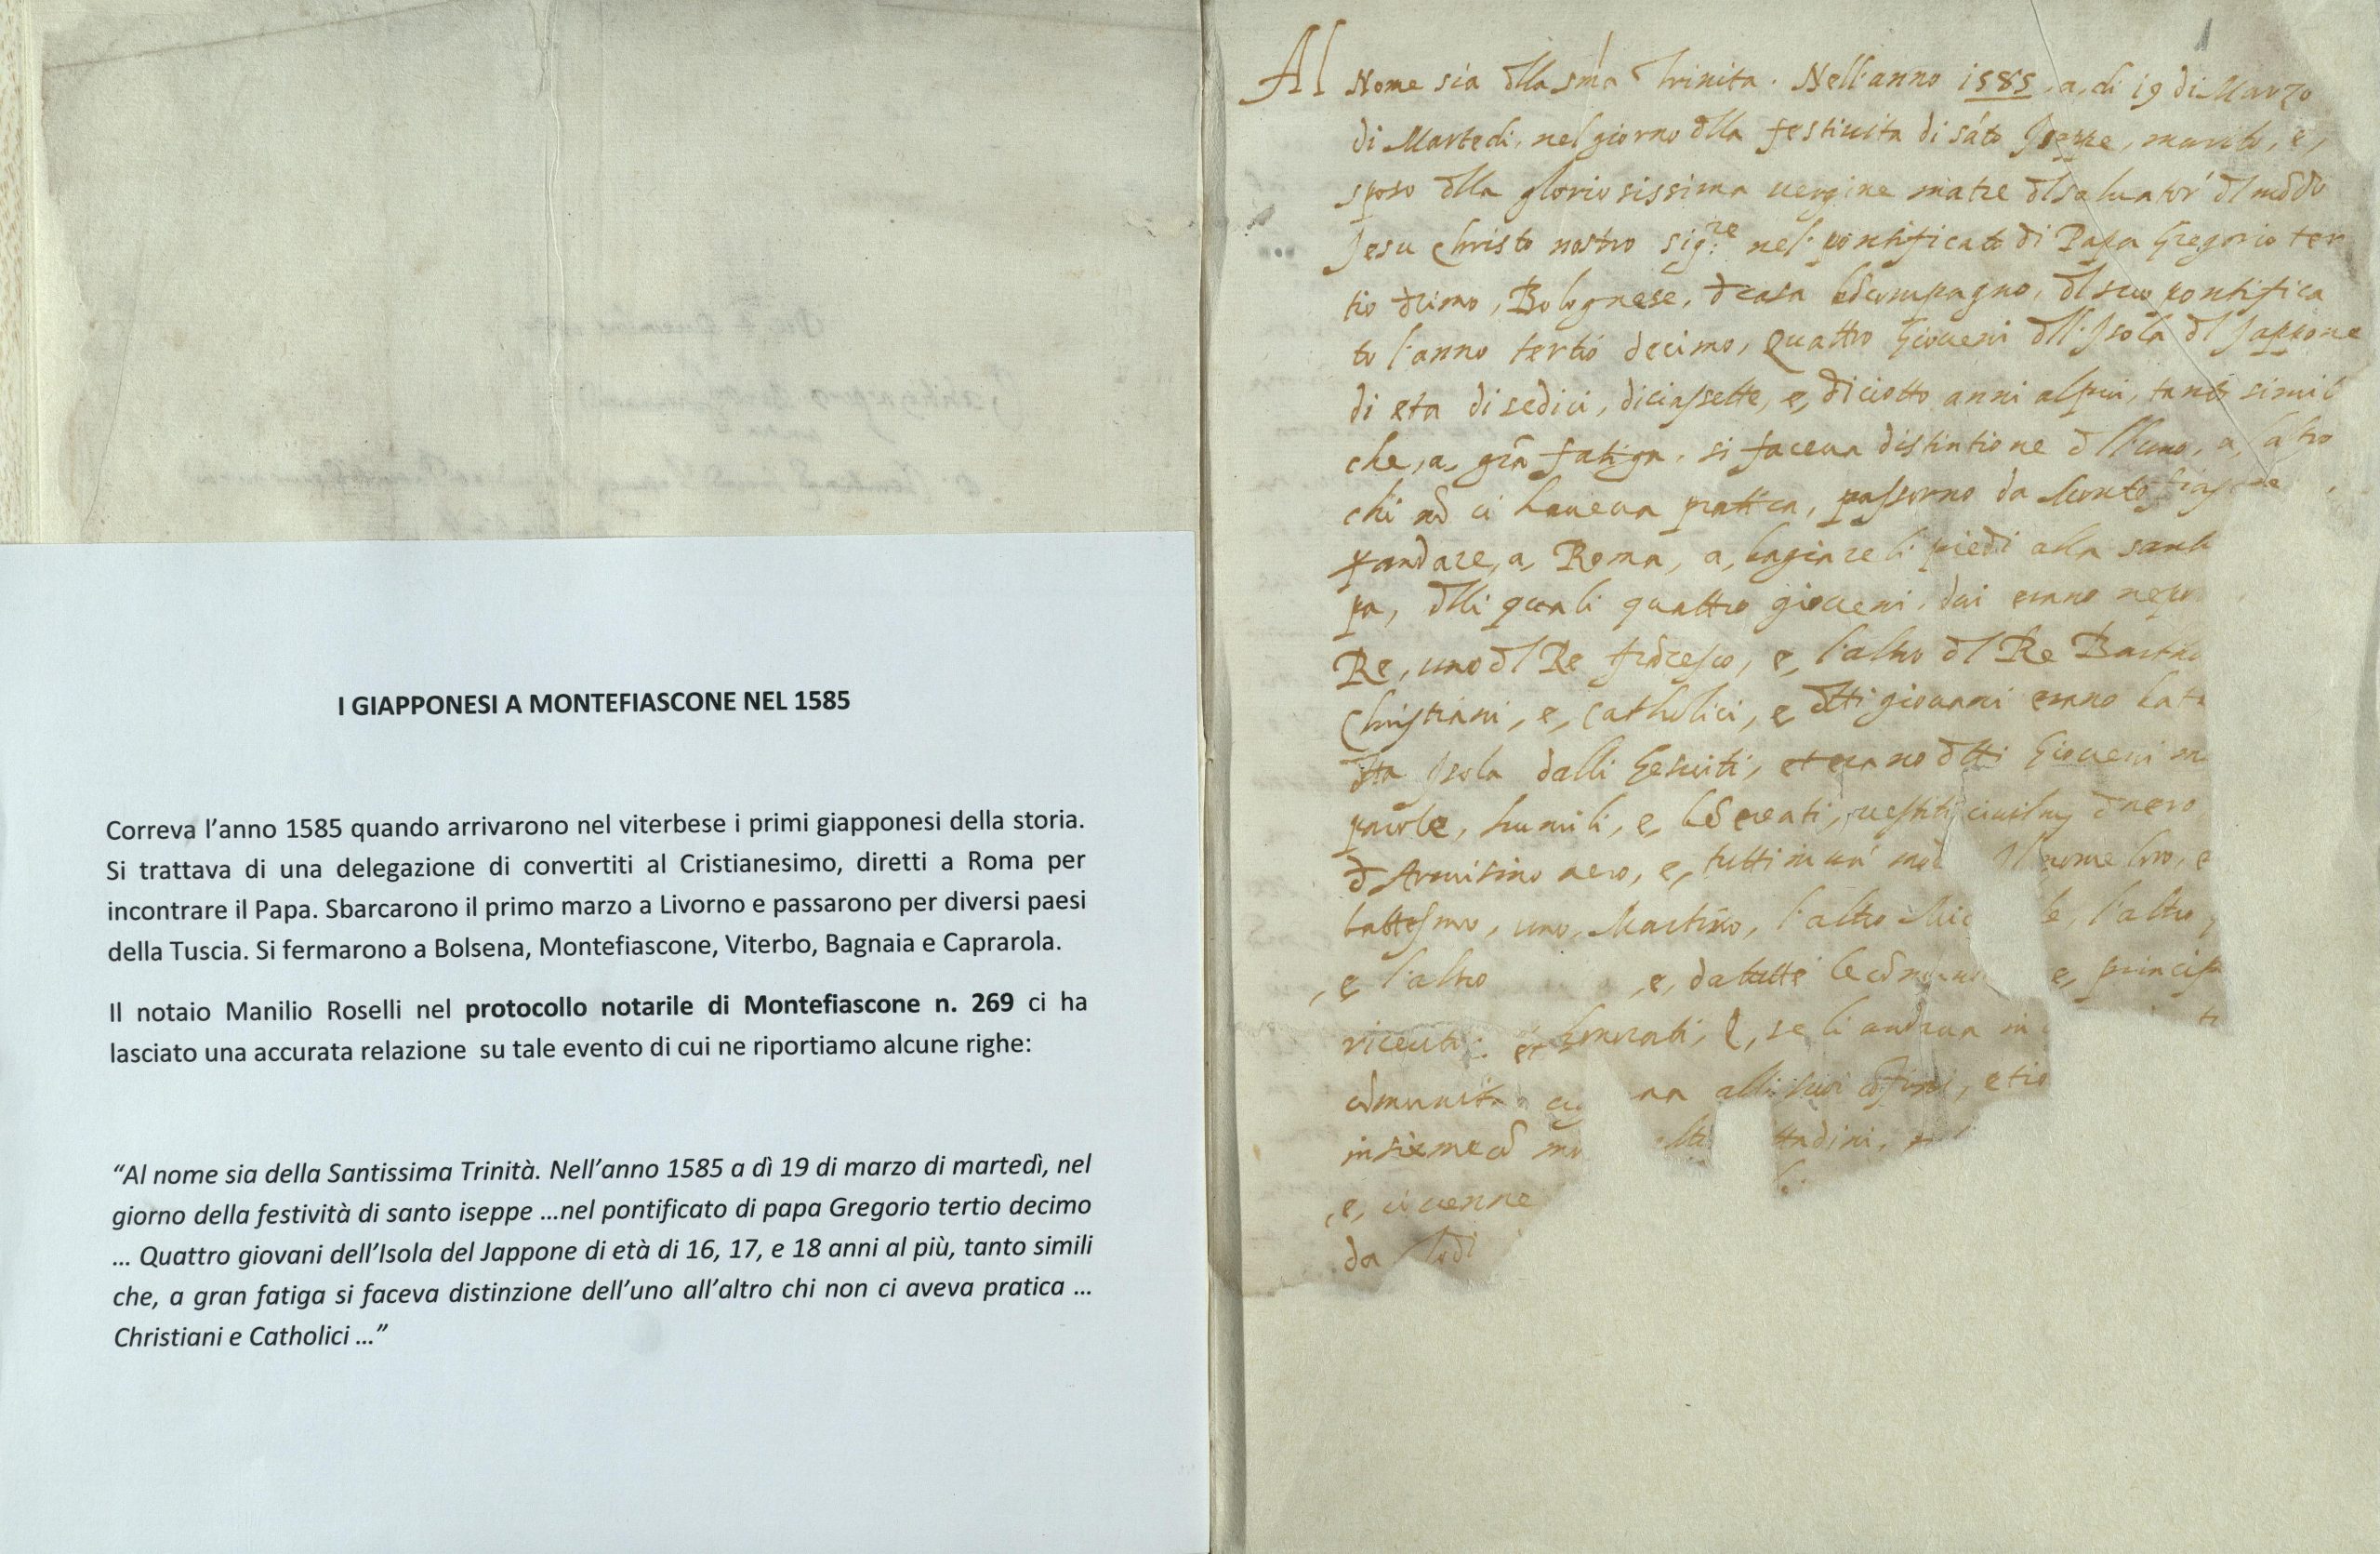 I GIAPPONESI A MONTEFIASCONE NEL 1585
Correva l’anno 1585 quando arrivarono nel viterbese i primi giapponesi della storia.
Si trattava di una delegazione di convertiti al Cristianesimo, diretti a Roma per
incontrare il Papa. Sbarcarono il primo marzo a Livorno e passarono per diversi paesi
della Tuscia. Si fermarono a Bolsena, Montefiascone, Viterbo, Bagnaia e Caprarola.
Il notaio Manilio Roselli nel protocollo notarile di Montefiascone n. 269 ci ha
lasciato una accurata relazione su tale evento di cui ne riportiamo alcune righe:
“Al nome sia della Santissima Trinità. Nell’anno 1585 a dì 19 di marzo di martedì, nel
giorno della festività di santo iseppe …nel pontificato di papa Gregorio tertio decimo
… Quattro giovani dell’Isola del Jappone di età di 16, 17, e 18 anni al più, tanto simili
che, a gran fatiga si faceva distinzione dell’uno all’altro chi non ci aveva pratica …
Christiani e Catholici …”
Al Nome sia dlla sma Trinita. Nell'anno 1585, a, di 19 di Marzo
di Martedi, nel giorno dlla festiuita di sato Joseppe, marito, e,
sposo dlla gloriosissima uergine matre dl saluator dl modo
Jesu Christo nostro sig:re nel pontificato di Papa Gregorio ter
tio dcimo, Bolognese, d casa bocompagno, dl suo pontifica
to l'anno tertio decimo, Quattro Gioueni dll'Isola dl Jappone
di eta di sedici, diciassette, e, diciotto anni al piu, tanto simili
che, a, gra fatiga, si faceua distintione dll'uno, a, l'altro
chi no ci haueua prattica, passorno da Monte
andare, a, Roma, a, bagiare li piedi alla
pa, dlli quali quattro gioueni, dui erano
Re, uno dl Re fracesco, e, l'altro dl Re
Christiani, e, Catholici, e dtti giouani erano
dtta Isola dalli Gesuiti, et erano dtti Gioueni
parole, humili, e, be creati, uestiti d nero
d Armisino nero, e, tutti in un nome loro, e
battesmo, uno, Martino, l'altro l'altro
, e l'altro , e, da tutte e, princip
riceuti: et honorati, se li andaua in
comunita alli suoi cofini,
insieme co
, e, ci uenne
da